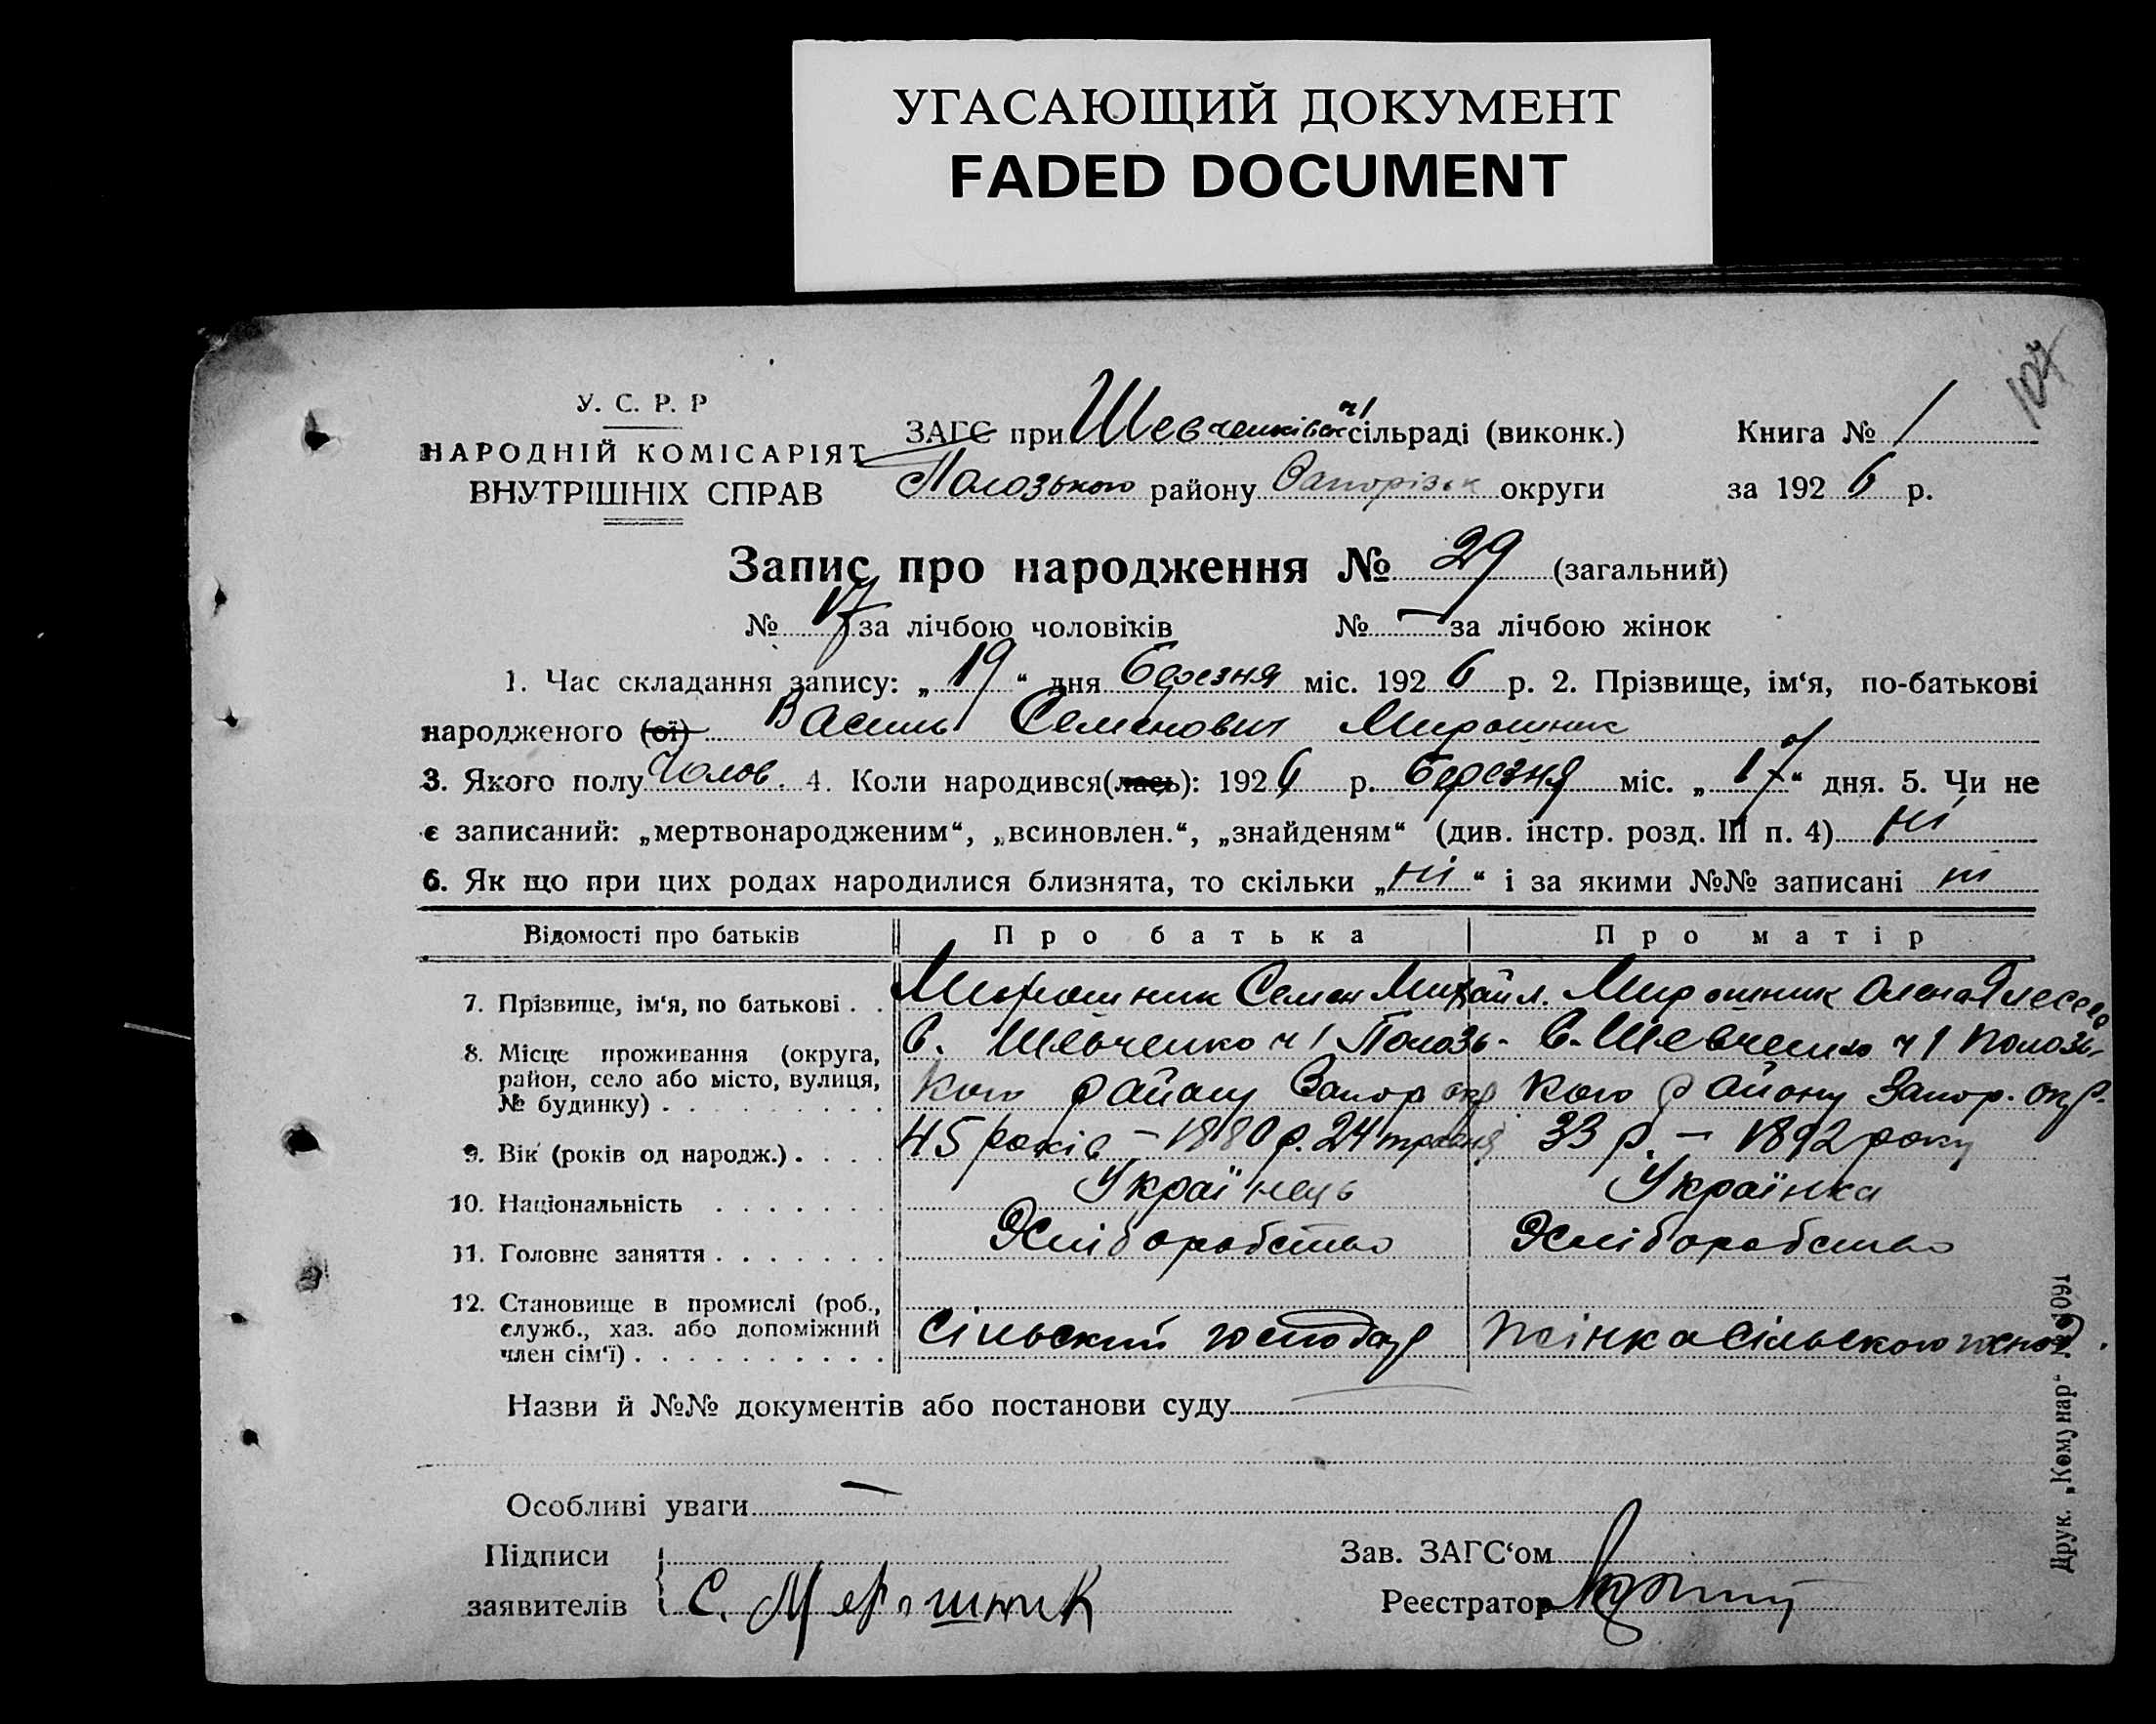 УГАСАЮЩИЙ ДОКУМЕНТ
FADED DOCUMENT
У. С. Р. Р
НАРОДНІЙ КОМІСАРІЯТ
ВНУТРІШНІХ СПРАВ
ЗАГС при Шевченківськ ч1 сільраді (виконк.)
Полозького району Запорізьк округи
Книга № 1
за 1926 р.
Запис про народження № 29 (загальний)
№ 17 за лічбою чоловіків № — за лічбою жінок
1. Час складання запису: „19“ дня березня міс. 1926 р. 2. Прізвище, ім‘я, по-батькові
народженого (ої) Василь Семенович Мирошник
3. Якого полу Чолов. 4. Коли народився(лась): 1926 р. березня міс. „17“ дня. 5. Чи не
є записаний: „мертвонародженим“, „всиновлен.“, „знайденям“ (див. інстр. розд. III п. 4) ні
6. Як що при цих родах народилися близнята, то скільки „ні“ і за якими №№ записані ні
Відомості про батьків Про батька Про матір
7. Прізвище, ім‘я, по батькові . . Мирошник Семен Михайл. Мирошник Олена
8. Місце проживання (округа, район, село або місто, вулиця, № будинку) . С. Шевченко ч1 Полозь- С. Шевченко ч1 Полозь-
кого району Запор окр кого району Запор. окр.
9. Вік (років од народж.) . . . . 45 років – 1880 р. 24 травня 33 р. – 1892 року
10. Національність . . . . . . . Українець Українка
11. Головне заняття . . . . . . . Хліборобство Хліборобство
12. Становище в промислі (роб., служб., хаз. або допоміжний член сім‘ї) . . . . . . . . . . Сільский господар Жінка сільского господ.
Назви й №№ документів або постанови суду
Особливі уваги —
Підписи
заявителів С. Мерошник
Зав. ЗАГС‘ом
Реєстратор
Друк. „Комунар“ № 1091